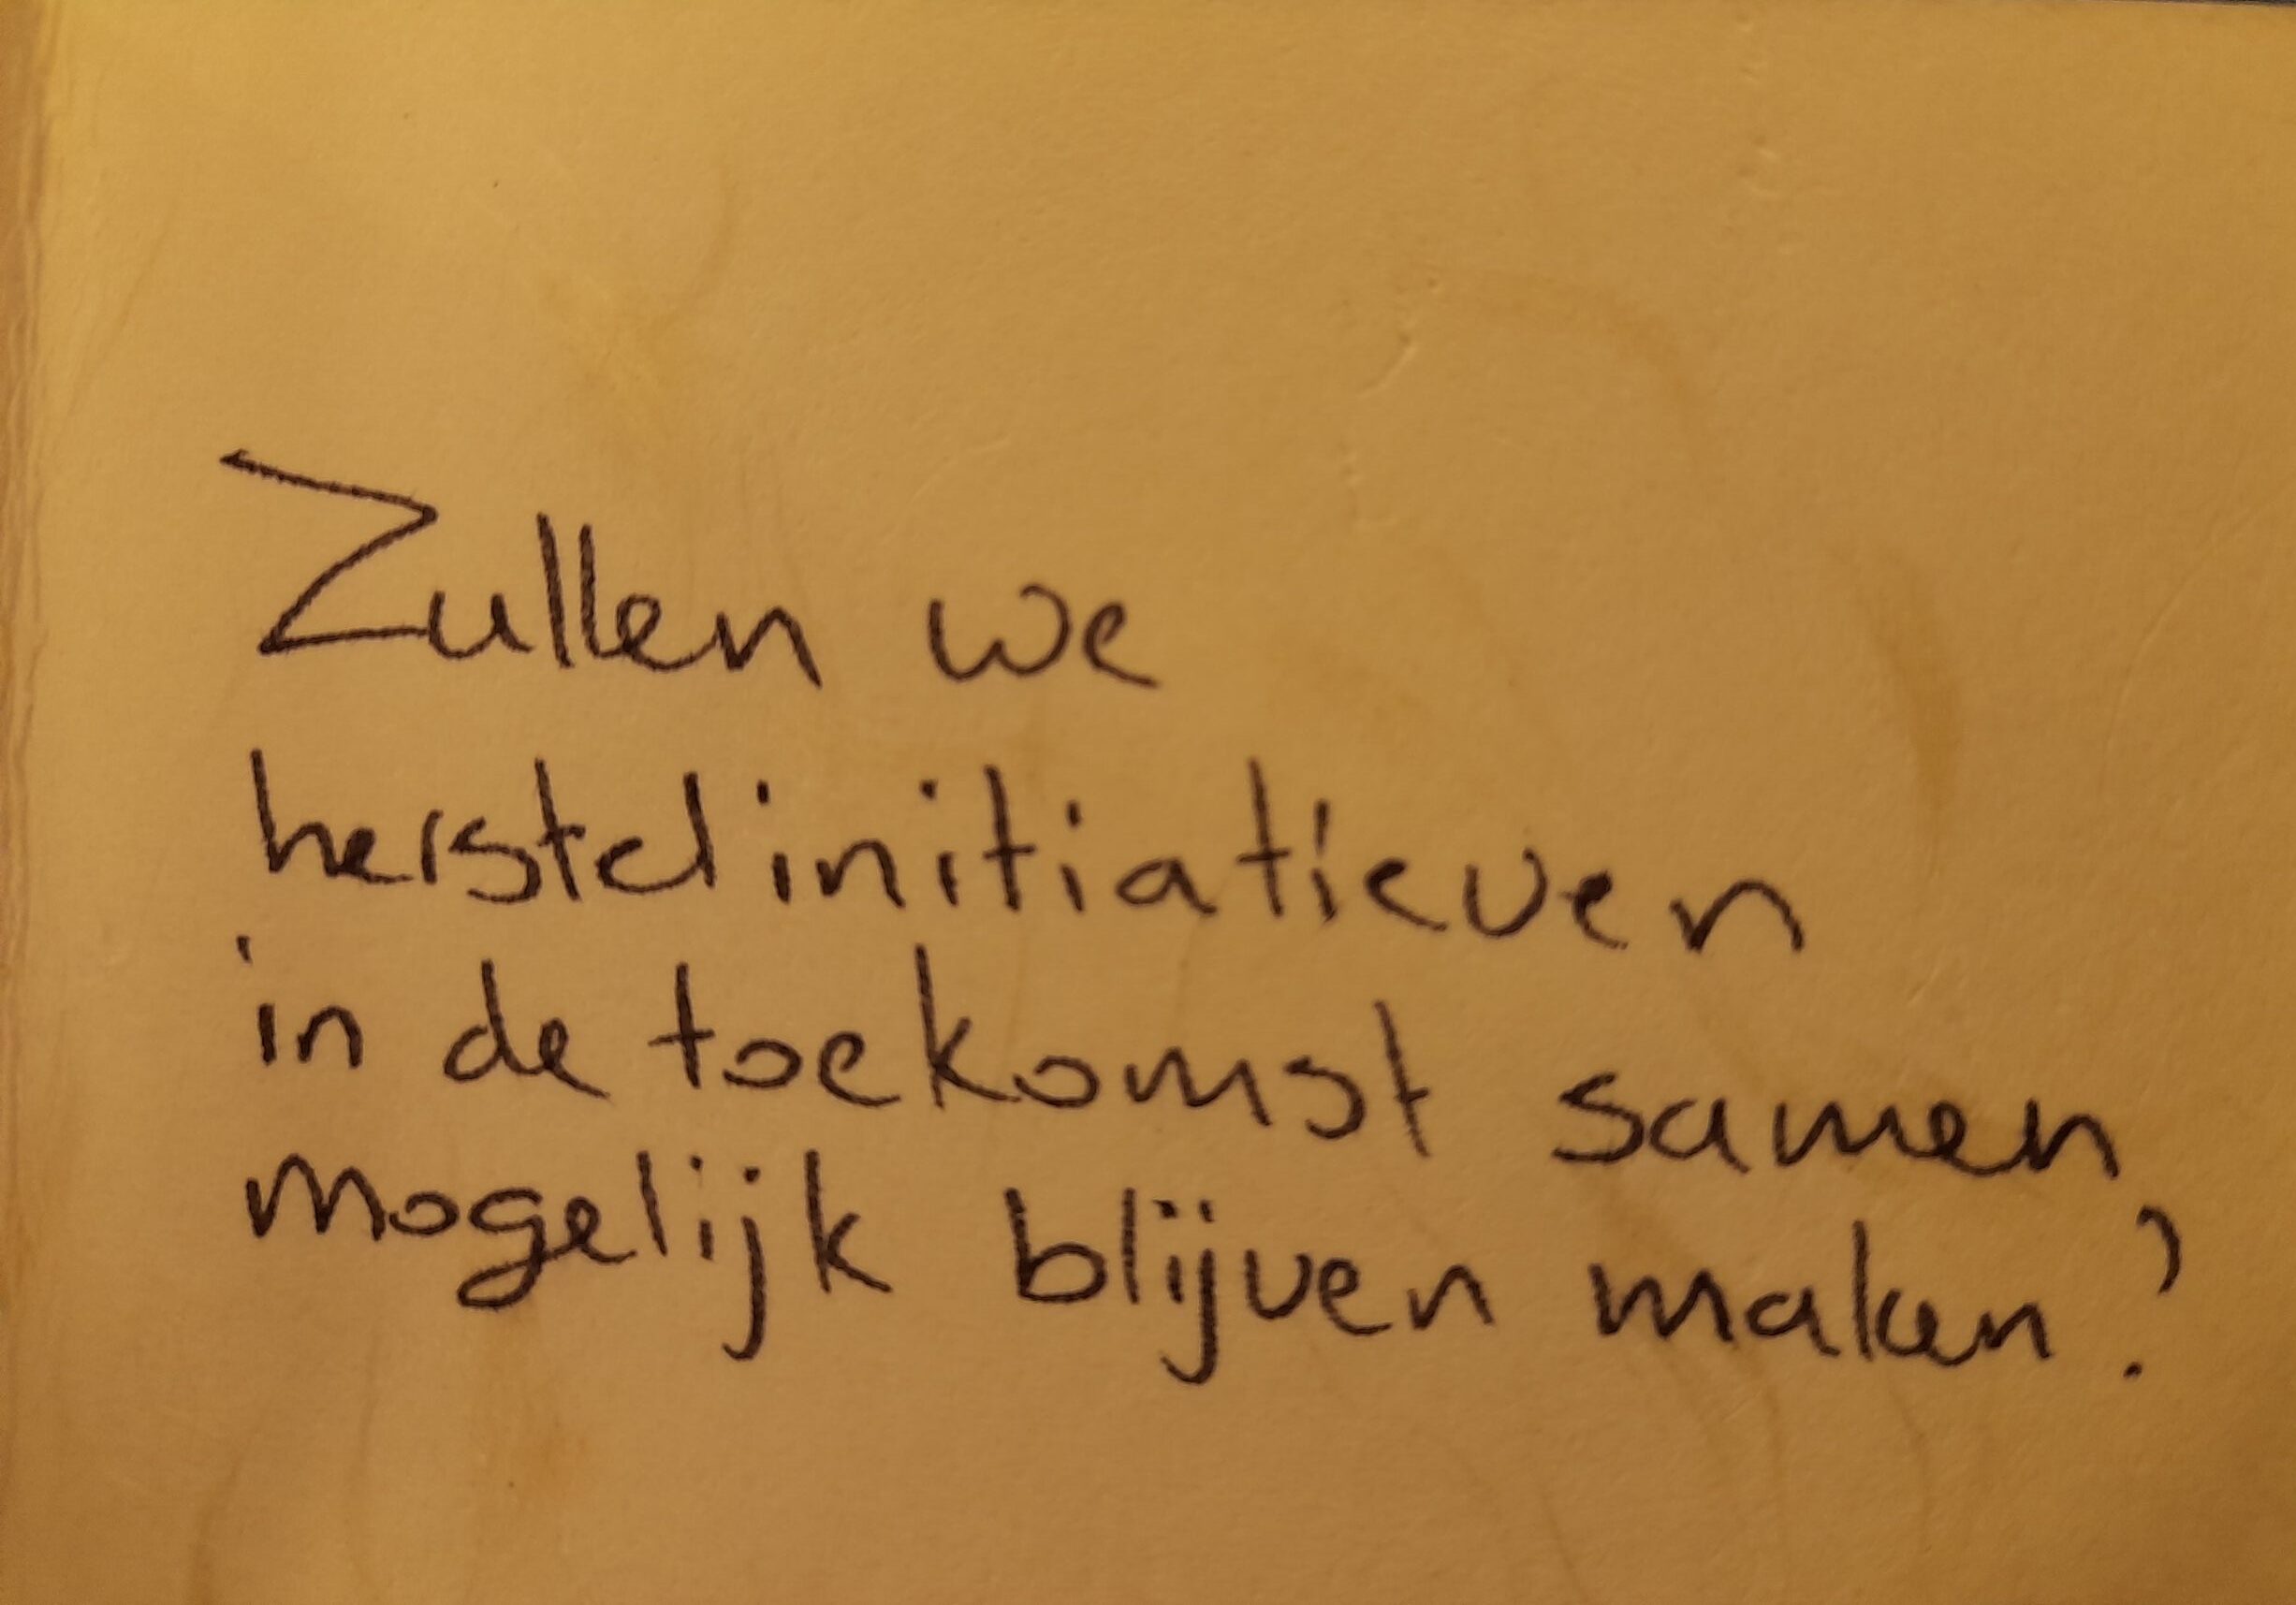 Zullen we
herstelinitiatieven
in de toekomst samen
mogelijk blijven maken?